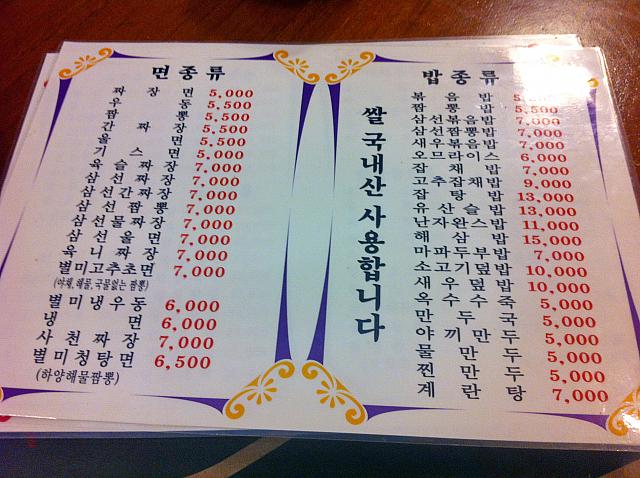 면 종 류
짜 장 면 5,000
우 동 5,500
짬 뽕 5,500
간 짜 장 5,500
울 면 5,500
기 스 면 5,000
육 슬 짜 장 7,000
삼 선 짜 장 7,000
삼 선 간 짜 장 7,000
삼 선 짬 뽕 7,000
삼 선 물 짜 장 7,000
삼 선 울 면 7,000
육 니 짜 장 7,000
별미고추초면 7,000
(야채, 해물, 국물없는 짬뽕)
별 미 냉 우 동 6,000
냉 면 6,000
사 천 짜 장 7,000
별 미 청 탕 면 6,500
(하얀해물짬뽕)
쌀 국내산 사용합니다
밥 종 류
볶 음 밥
짬 뽕 밥 5,500
삼 선 볶 음 밥 7,000
삼 선 짬 뽕 밥 7,000
새 우 볶 음 밥 7,000
오 므 라 이 스 6,000
잡 채 밥 7,000
고 추 잡 채 밥 9,000
잡 탕 밥 13,000
유 산 슬 밥 13,000
난 자 완 스 밥 11,000
해 삼 밥 15,000
마 파 두 부 밥 7,000
소 고 기 덮 밥 10,000
새 우 덮 밥 10,000
옥 수 수 죽 5,000
만 두 국 5,000
야 끼 만 두 5,000
물 만 두 5,000
찐 만 두 5,000
계 란 탕 7,000